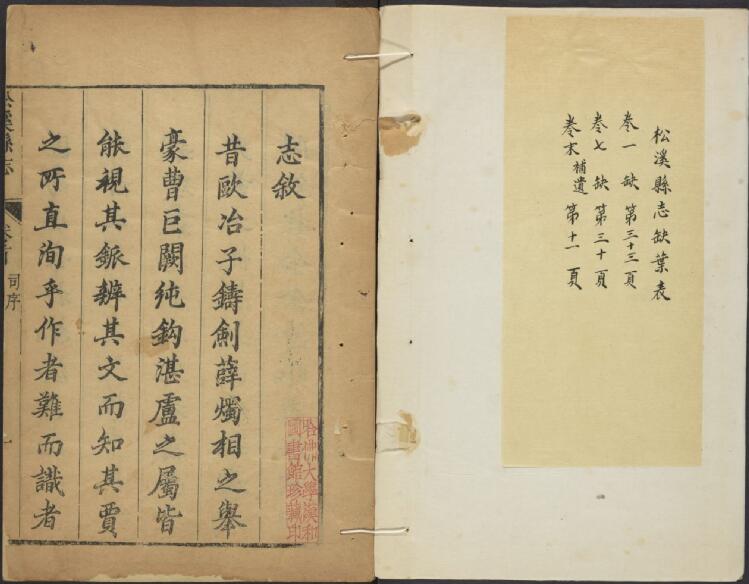 松溪縣志缺葉表
卷一 缺 第三十三頁
卷七 缺 第三十頁
卷末 補遺 第十一頁
志敘
昔歐冶子鑄劍薛燭相之舉
豪曹巨闕純鈎湛盧之屬皆
能視其鈲辨其文而知其賈
之所直洵乎作者難而識者
松溪縣志
卷首
司序
一
哈佛大學漢和
圖書館珍藏印